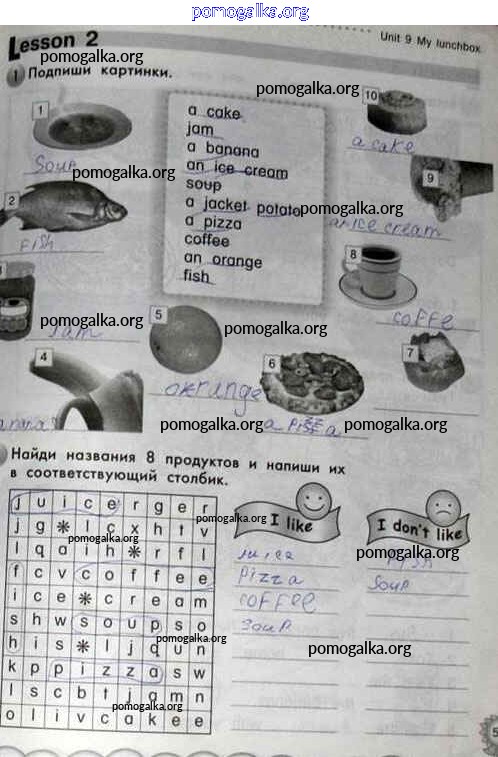 pomogalka.org
Lesson 2
Unit 9 My lunchbox
1 Подпиши картинки.
pomogalka.org
pomogalka.org
1
10
a cake
jam
a banana
an ice cream
soup
a jacket potato
a pizza
coffee
an orange
fish
Soup
pomogalka.org
a cake
2
9
pomogalka.org
Fish
an ice cream
8
pomogalka.org
5
pomogalka.org
coffe
Jam
4
6
7
okrange
pomogalka.org
a pizza
pomogalka.org
Найди названия 8 продуктов и напиши их
в соответствующий столбик.
I like
I don't like
j u i c e r g e r
j g * l c x h t v
l q a i h * r f l
f c v c o f f e e
i c e * c r e a m
s h w s o u p s o
h i s * l j q u n
k p p i z z a s w
l s c b t j a m n
o l i v c a k e e
pomogalka.org
pomogalka.org
juice
pizza
coffee
soup
fish
soup
pomogalka.org
pomogalka.org
pomogalka.org
5